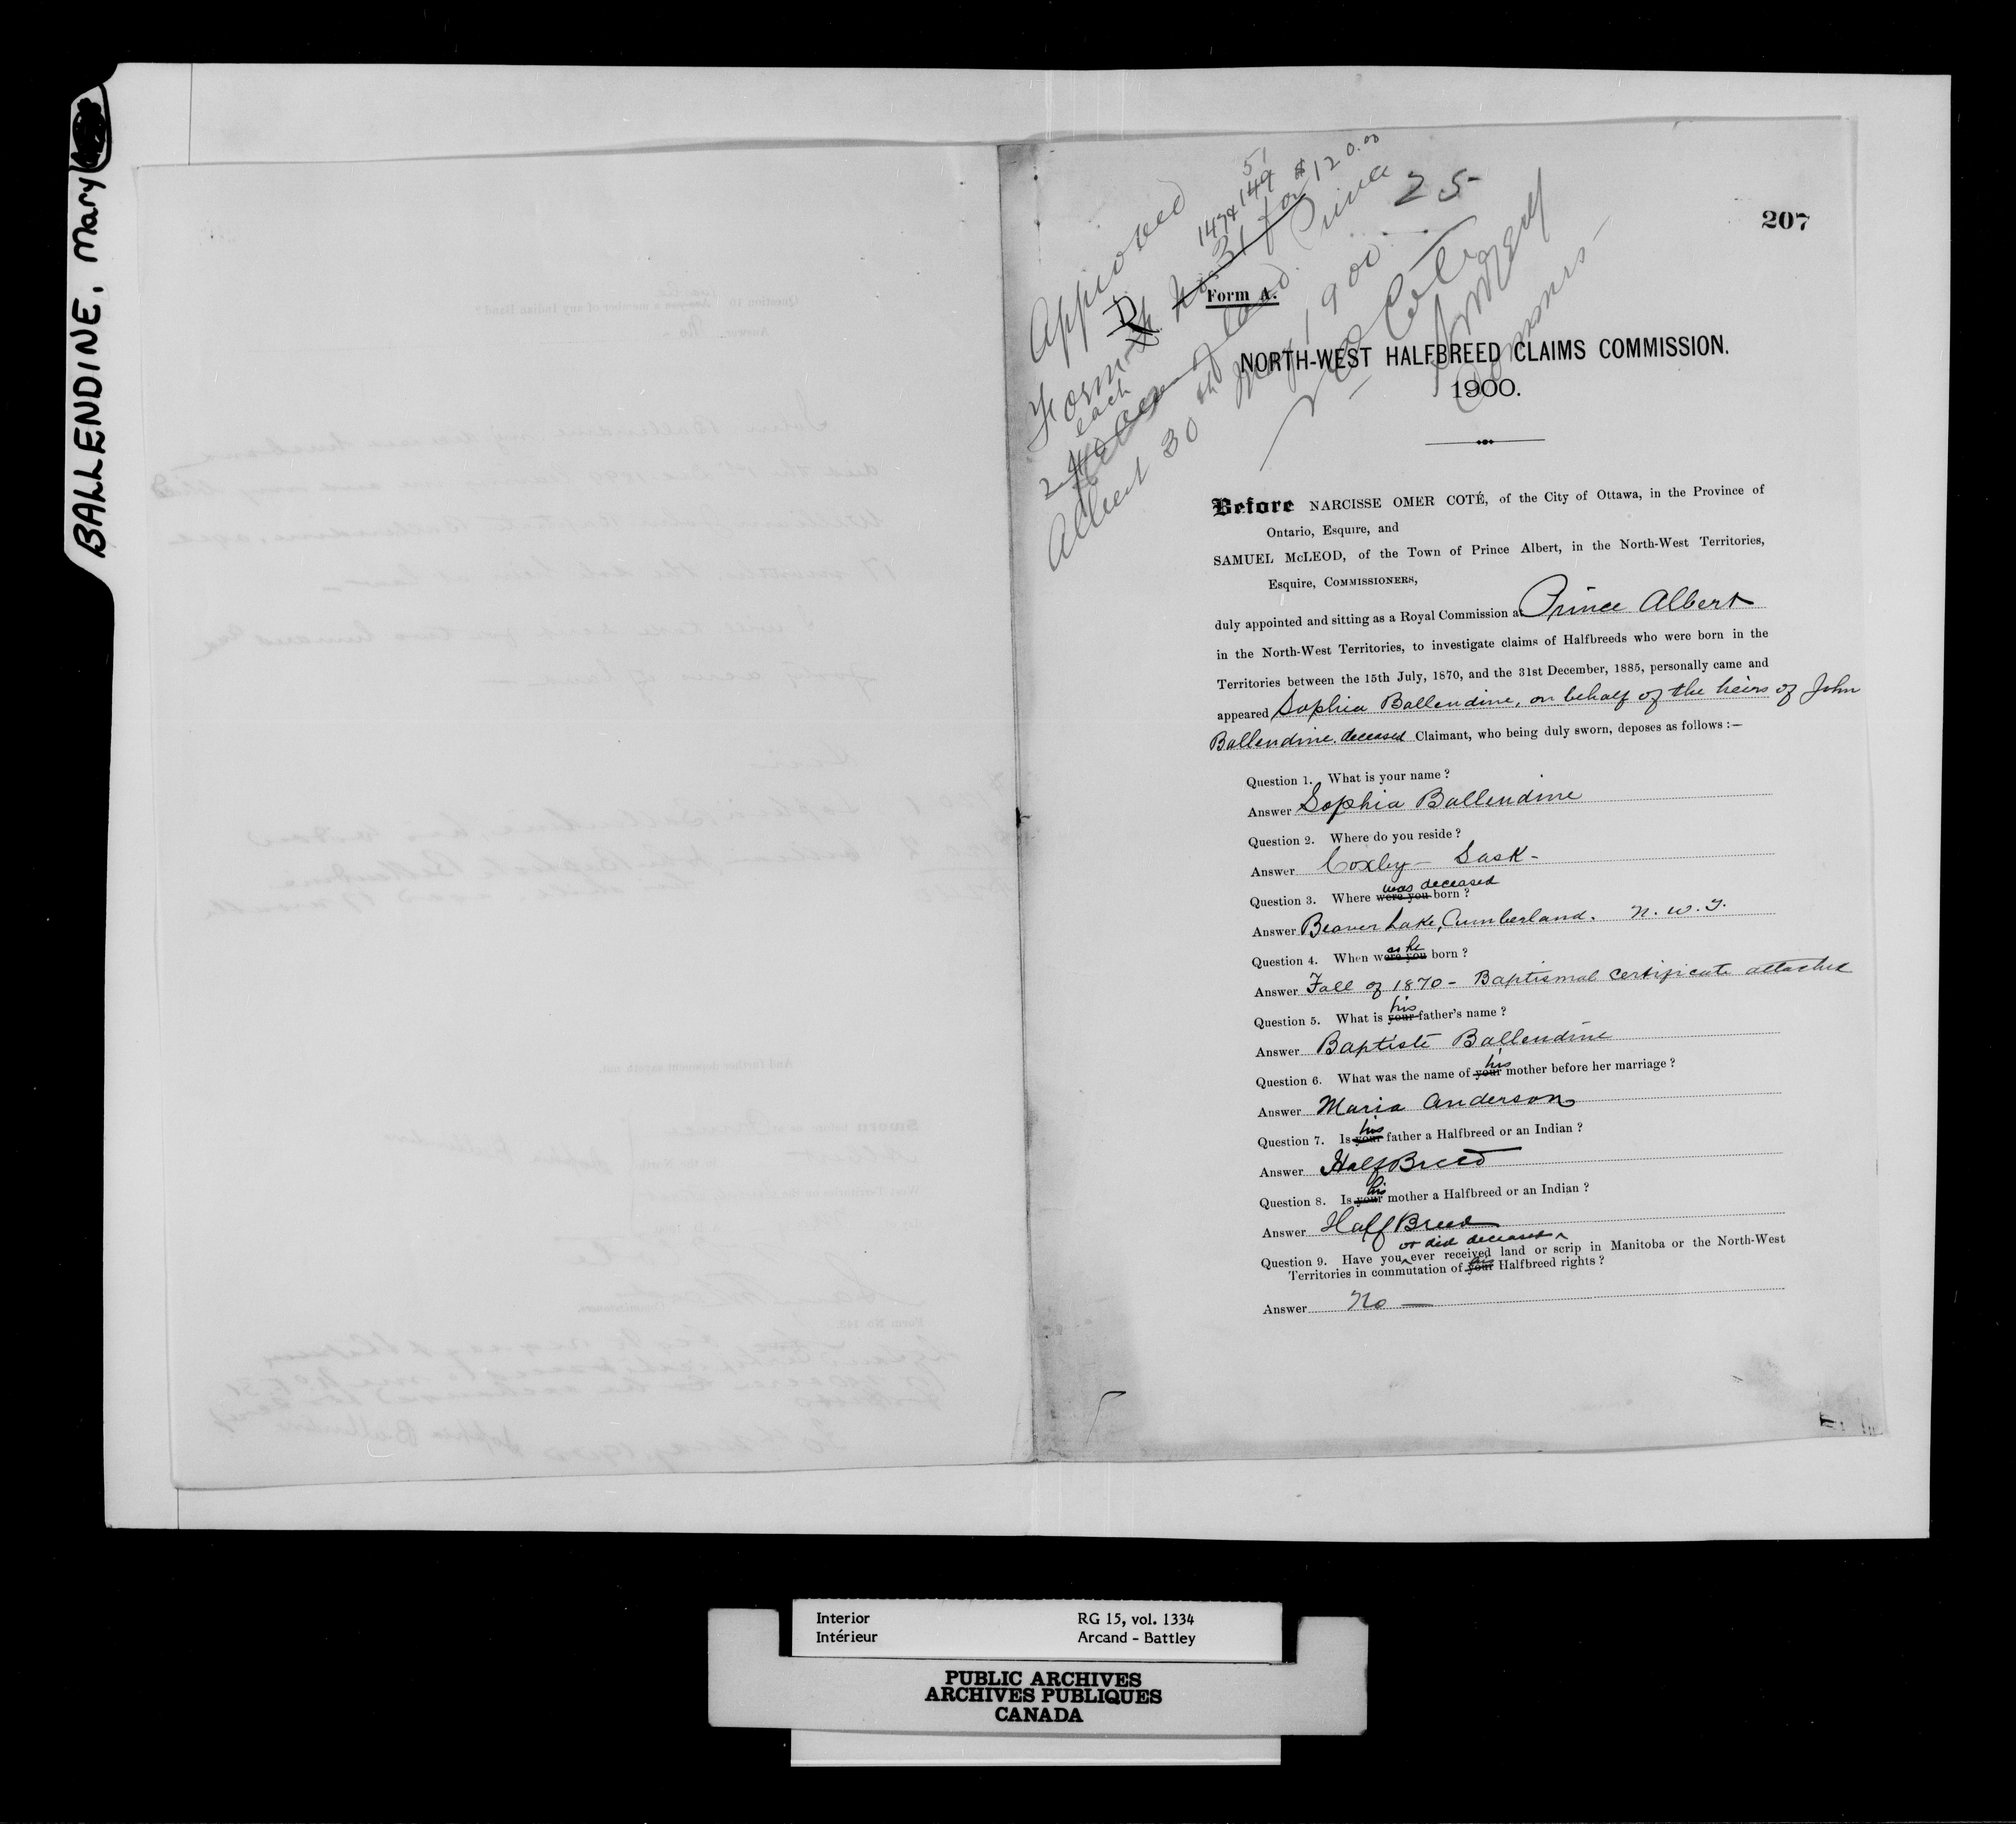 BALLENDINE, Mary
207
25
Approved
Form D
147 & 149
51
No 31 for $120.00
each
240 acres of land. Prince
Albert 30th May 1900
N. O. Coté
S McLeod
Form A.
NORTH-WEST HALFBREED CLAIMS COMMISSION.
1900.
Before NARCISSE OMER COTÉ, of the City of Ottawa, in the Province of
Ontario, Esquire, and
SAMUEL McLEOD, of the Town of Prince Albert, in the North-West Territories,
Esquire, COMMISSIONERS,
duly appointed and sitting as a Royal Commission at Prince Albert
in the North-West Territories, to investigate claims of Halfbreeds who were born in the
Territories between the 15th July, 1870, and the 31st December, 1885, personally came and
appeared Sophia Ballendine, on behalf of the heirs of John
Ballendine, deceased Claimant, who being duly sworn, deposes as follows :—
Question 1. What is your name ?
Answer Sophia Ballendine
Question 2. Where do you reside ?
Answer Coxby - Sask -
was deceased
Question 3. Where were you born ?
Answer Beaver Lake, Cumberland. N. W. T.
as he
Question 4. When were you born ?
Answer Fall of 1870 - Baptismal certificate attached
his
Question 5. What is your father's name ?
Answer Baptiste Ballendine
his
Question 6. What was the name of your mother before her marriage ?
Answer Maria Anderson
his
Question 7. Is your father a Halfbreed or an Indian ?
Answer HalfBreed
his
Question 8. Is your mother a Halfbreed or an Indian ?
Answer Half Breed
or did deceased
Question 9. Have you ever received land or scrip in Manitoba or the North-West
his
Territories in commutation of your Halfbreed rights ?
Answer No —
Interior RG 15, vol. 1334
Intérieur Arcand - Battley
PUBLIC ARCHIVES
ARCHIVES PUBLIQUES
CANADA